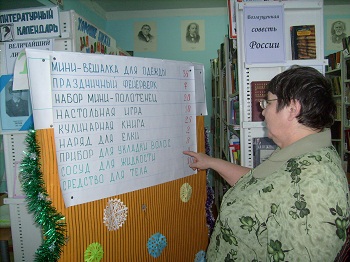 ЛИТЕРАТУРНЫЙ
КАЛЕНДАРЬ
Возмущенная
совесть
России
МИНИ-ВЕШАЛКА ДЛЯ ОДЕЖДЫ
ПРАЗДНИЧНЫЙ ФЕЙЕРВЕРК
НАБОР МИНИ-ПОЛОТЕНЕЦ
НАСТОЛЬНАЯ ИГРА
КУЛИНАРНАЯ КНИГА
НАРЯД ДЛЯ ЕЛКИ
ПРИБОР ДЛЯ УКЛАДКИ ВОЛОС
СОСУД ДЛЯ ЖИДКОСТИ
СРЕДСТВО ДЛЯ ТЕЛА